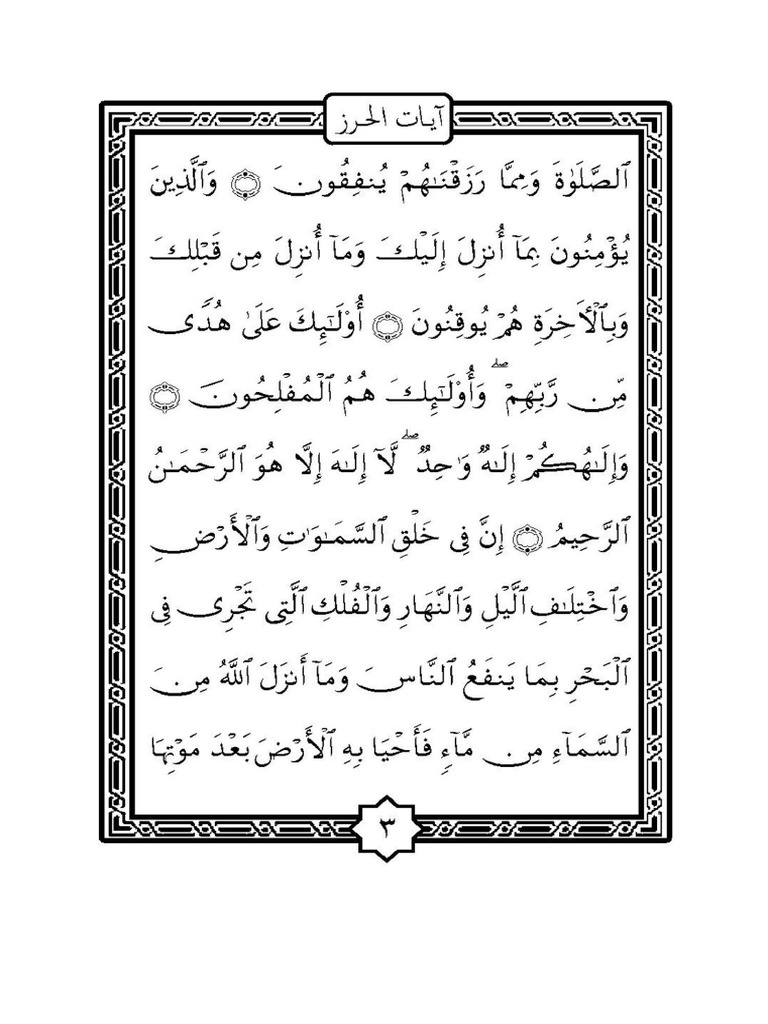 آيات الحرز
ٱلصَّلَوٰةَ وَمِمَّا رَزَقْنَـٰهُمْ يُنفِقُونَ ۝ وَٱلَّذِينَ
يُؤْمِنُونَ بِمَآ أُنزِلَ إِلَيْكَ وَمَآ أُنزِلَ مِن قَبْلِكَ
وَبِٱلْأَخِرَةِ هُمْ يُوقِنُونَ ۝ أُو۟لَـٰٓئِكَ عَلَىٰ هُدًى
مِّن رَّبِّهِمْ ۖ وَأُو۟لَـٰٓئِكَ هُمُ ٱلْمُفْلِحُونَ ۝
وَإِلَـٰهُكُمْ إِلَـٰهٌ وَٰحِدٌ ۖ لَّآ إِلَـٰهَ إِلَّا هُوَ ٱلرَّحْمَـٰنُ
ٱلرَّحِيمُ ۝ إِنَّ فِى خَلْقِ ٱلسَّمَـٰوَٰتِ وَٱلْأَرْضِ
وَٱخْتِلَـٰفِ ٱلَّيْلِ وَٱلنَّهَارِ وَٱلْفُلْكِ ٱلَّتِى تَجْرِى فِى
ٱلْبَحْرِ بِمَا يَنفَعُ ٱلنَّاسَ وَمَآ أَنزَلَ ٱللَّهُ مِنَ
ٱلسَّمَآءِ مِن مَّآءٍ فَأَحْيَا بِهِ ٱلْأَرْضَ بَعْدَ مَوْتِهَا
٣